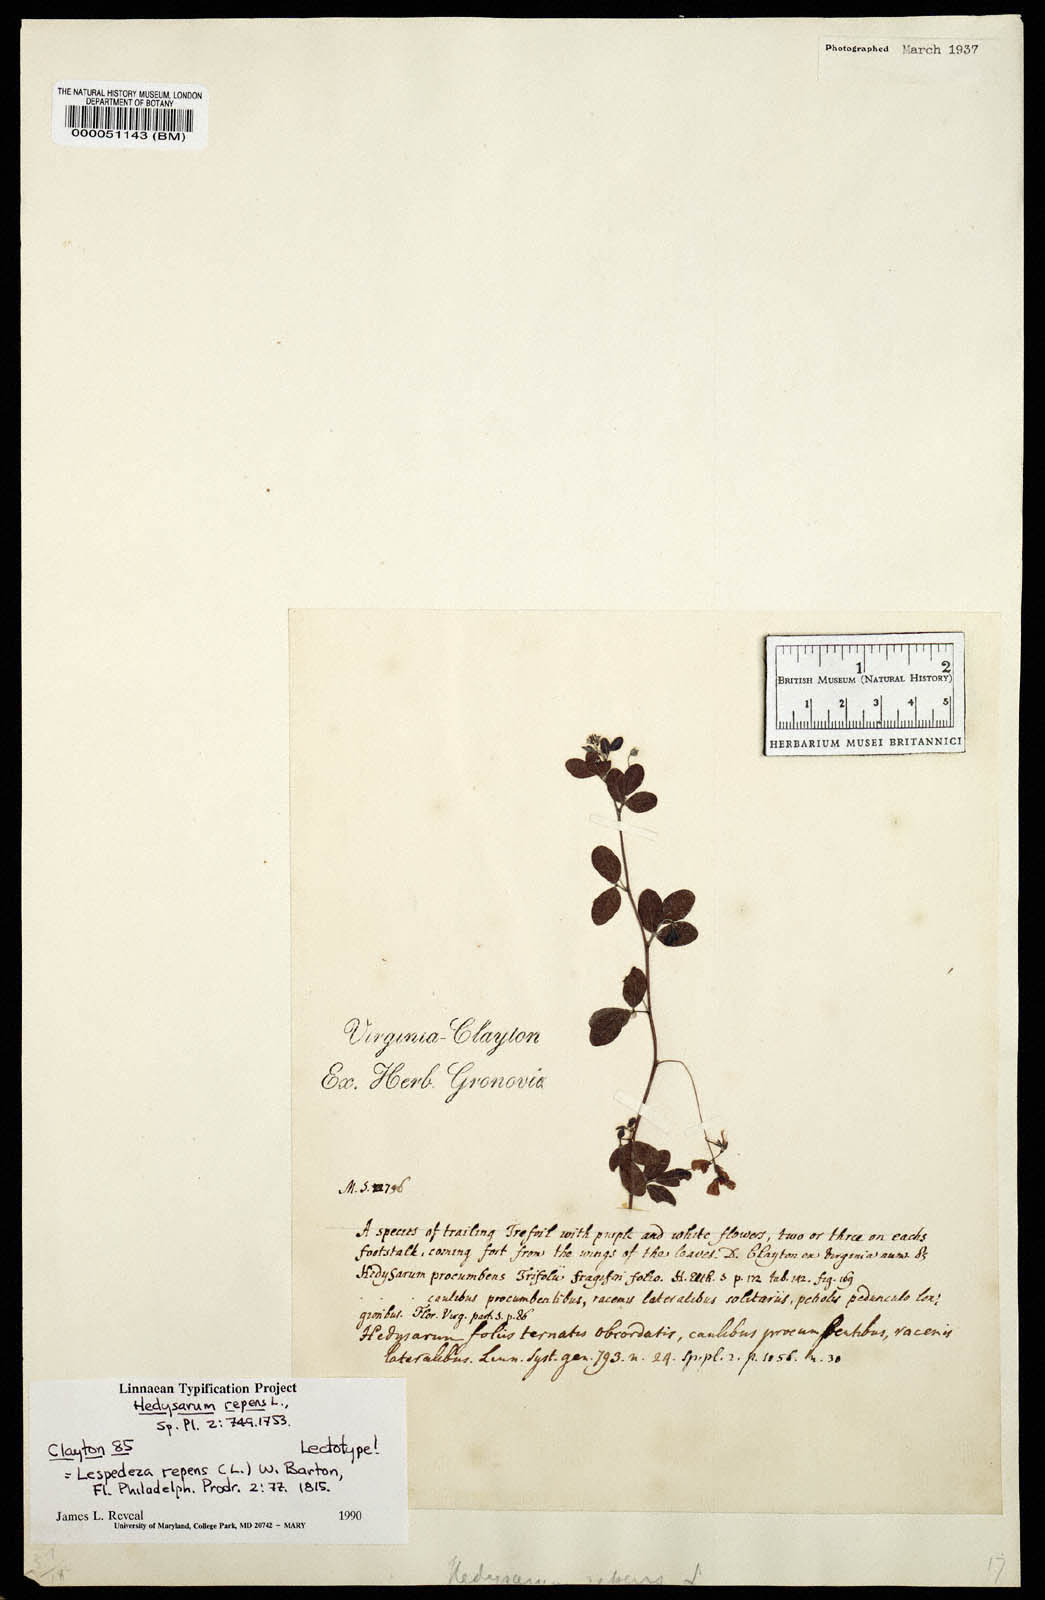 Photographed March 1937
THE NATURAL HISTORY MUSEUM, LONDON
DEPARTMENT OF BOTANY
000051143 (BM)
1 2
BRITISH MUSEUM (NATURAL HISTORY)
1 2 3 4 5
HERBARIUM MUSEI BRITANNICI
Virginia-Clayton
Ex. Herb. Gronovia
M. S. 796
A species of trailing Trefoil with purple and white flowers, two or three on each
footstalk, coming fort from the wings of the leaves. D. Clayton ex Virginia num. 85
Hedysarum procumbens Trifolii fragiferi folio. H. Elth. p. 172 tab. 142. fig. 169
. . . caulibus procumbentibus, racemis lateralibus solitariis, petiolis pedunculo lon:
gioribus. Flor. Virg. part. p. 86
Hedysarum foliis ternatis obcordatis, caulibus procumbentibus, racemis
lateralibus. Linn. Syst. gen. 793. n. 29. Sp. pl. 2. p. 1056. n. 30
Linnaean Typification Project
Hedysarum repens L.,
Sp. Pl. 2: 749. 1753.
Clayton 85 Lectotype!
= Lespedeza repens (L.) W. Barton,
Fl. Philadelph. Prodr. 2: 77. 1815.
James L. Reveal 1990
University of Maryland, College Park, MD 20742 – MARY
Hedysarum repens L
17